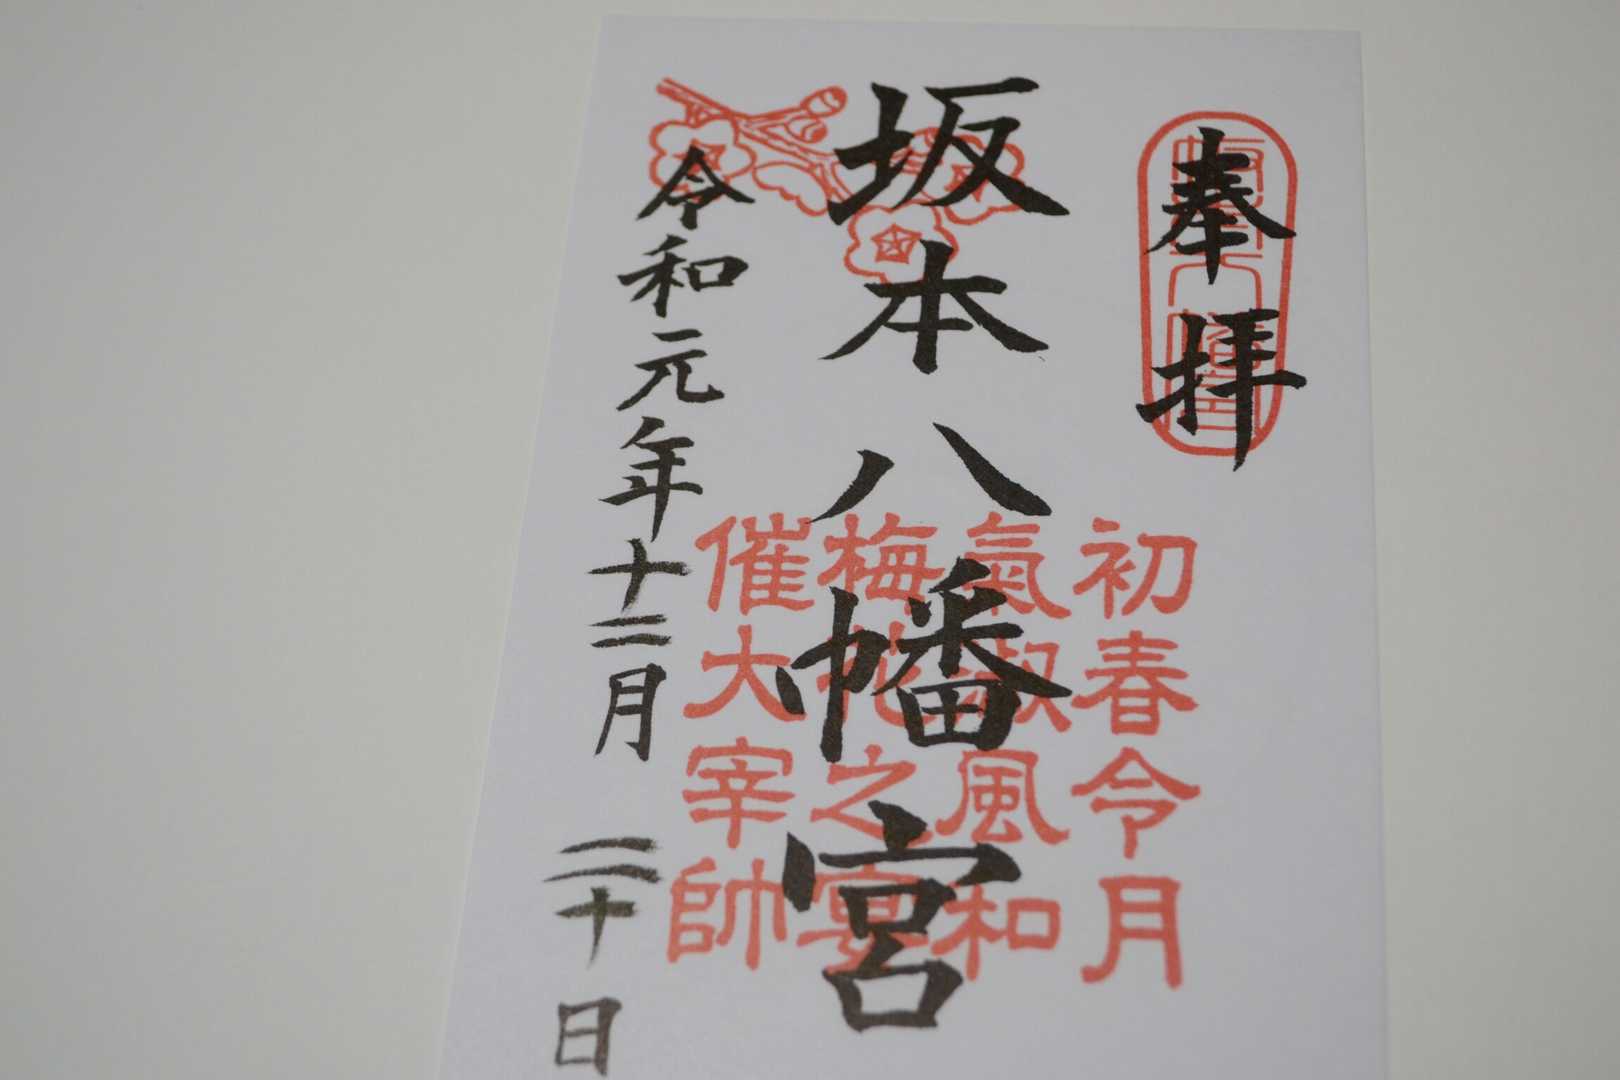 奉拝
坂本八幡宮
令和元年十二月 二十日
初春令月
氣淑風和
梅花之宴
催大宰帥